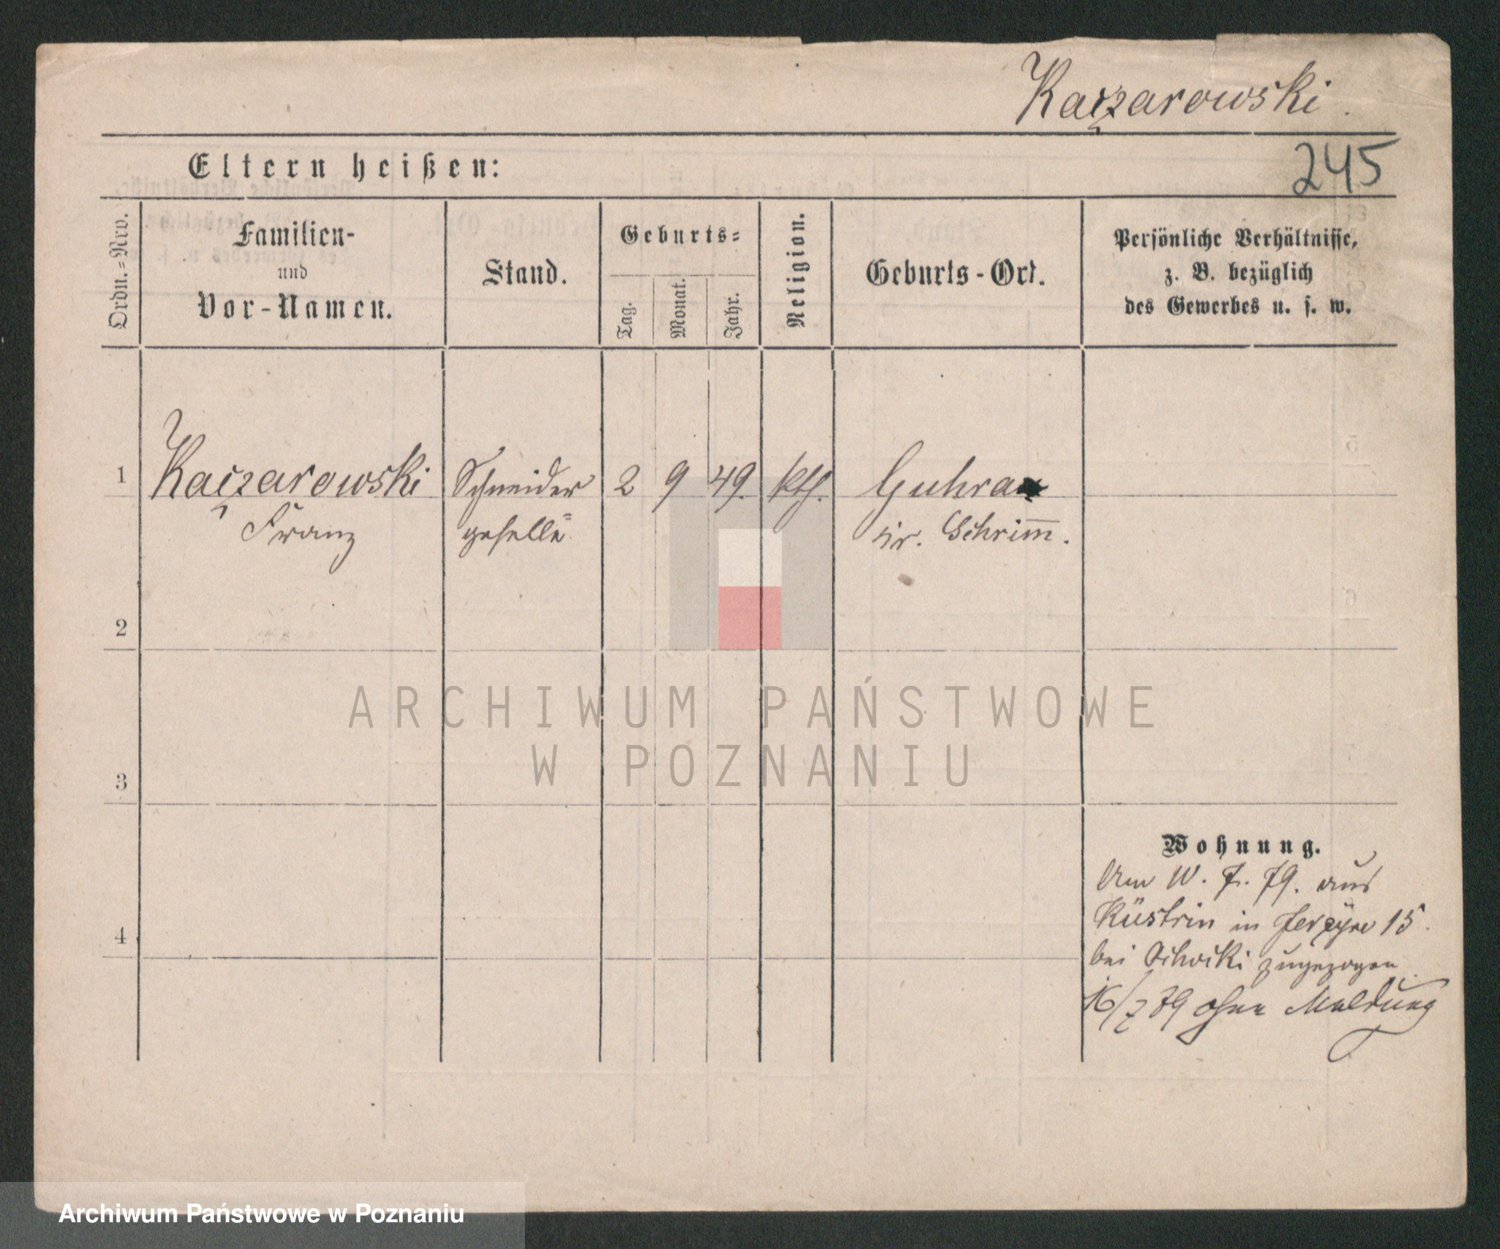 Kaczarowski.
245
Eltern heißen:
Ordn.=Nro.
Familien-
und
Vor-Namen.
Stand.
Geburts=
Tag.
Monat.
Jahr.
Religion.
Geburts-Ort.
Persönliche Verhältnisse,
z. B. bezüglich
des Gewerbes u. s. w.
1 Kaczarowski Schneider 2 9 49. kth. Guhra
Franz geselle Kr. Schrim̅.
2
3
4
Wohnung.
Am 10. 7. 79. aus
Küstrin in 15.
bei zugezogen.
16/7 79 ohne Meldung
ARCHIWUM PAŃSTWOWE
W POZNANIU
Archiwum Państwowe w Poznaniu